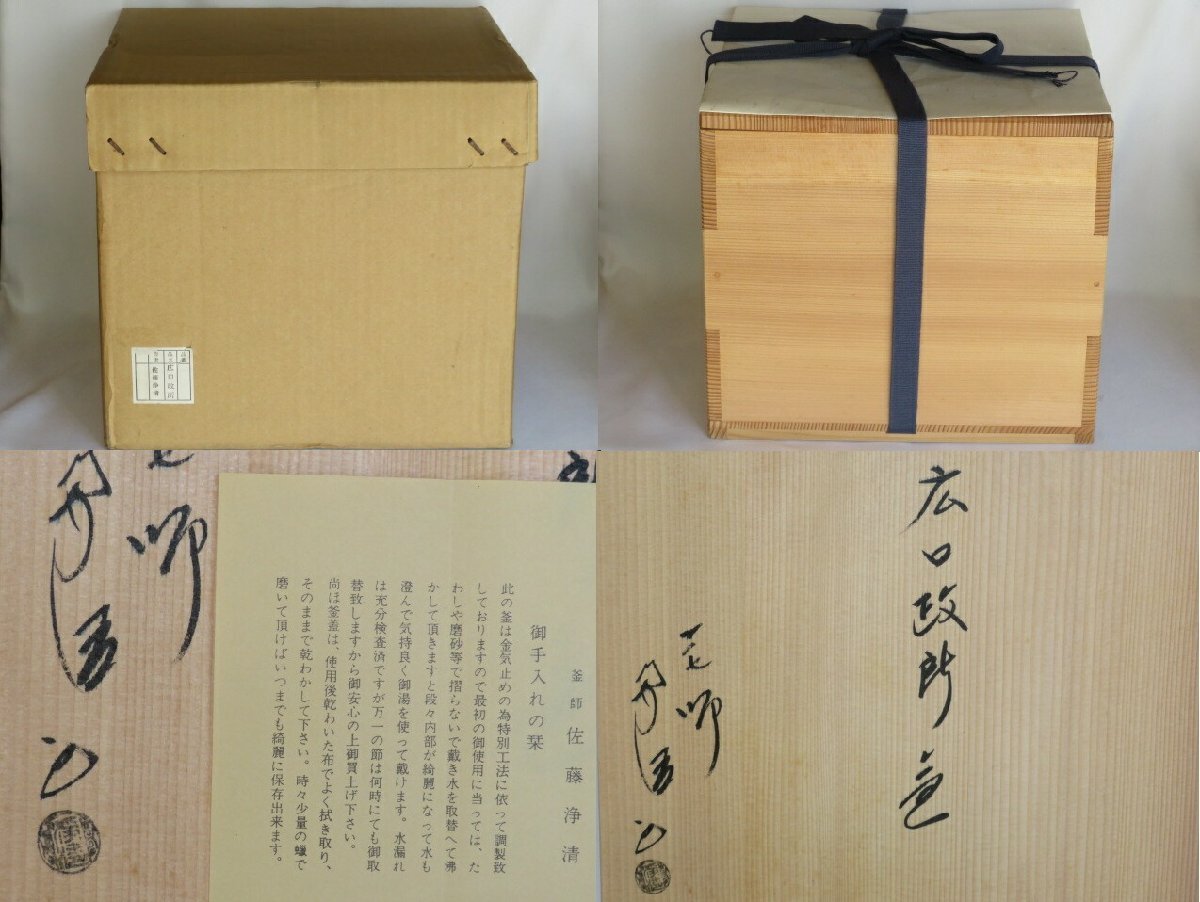 品名 広口政所
作者 佐藤浄清
釜師 佐藤浄清
御手入れの栞
此の釜は金気止めの為特別工法に依って調製致
しておりますので最初の御使用に当っては、た
わしや磨砂等で摺らないで戴き水を取替へて沸
かして頂きますと段々内部が綺麗になって水も
澄んで気持良く御湯を使って戴けます。水漏れ
は充分検査済ですが万一の節は何時にても御取
替致しますから御安心の上御買上げ下さい。
尚ほ釜蓋は、使用後乾わいた布でよく拭き取り、
そのままで乾わかして下さい。時々少量の蠟で
磨いて頂けばいつまでも綺麗に保存出来ます。
広口政所釜